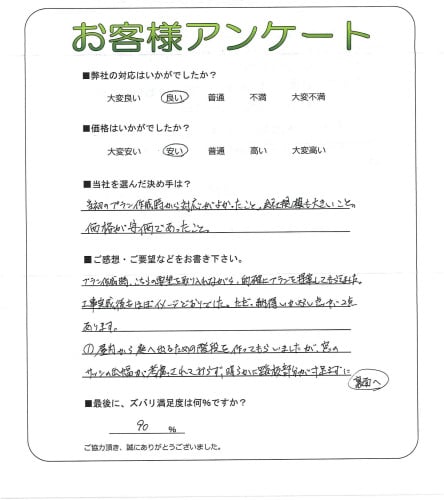 お客様アンケート
■弊社の対応はいかがでしたか?
大変良い 良い 普通 不満 大変不満
■価格はいかがでしたか?
大変安い 安い 普通 高い 大変高い
■当社を選んだ決め手は?
当初のプラン作成時から対応がよかったこと。会社規模も大きいこと。
価格が安価であったこと。
■ご感想・ご要望などをお書き下さい。
プラン作成時、こちらの要望を取り入れながら、的確にプランを提案してもらえました。
工事完成後もほぼイメージどおりでした。ただ、納得いかない点が2点
あります。
①屋内から庭へ出るための階段を作ってもらいましたが、窓の
サッシの が考慮されておらず、明らかに踏板部分が寸足らずに
裏面へ
■最後に、ズバリ満足度は何%ですか?
90 %
ご協力頂き、誠にありがとうございました。